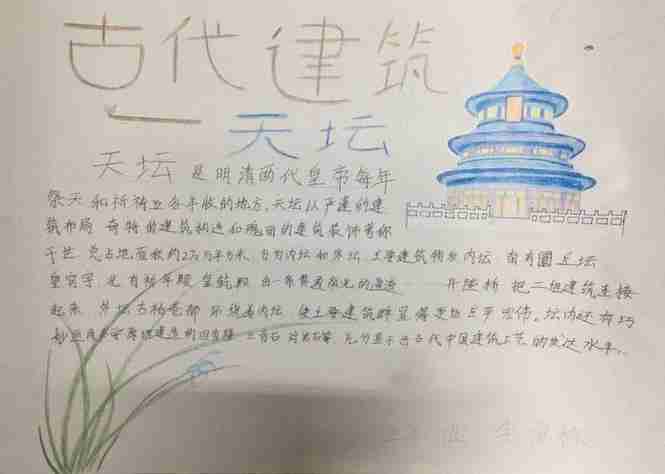 古代建筑
一天坛
天坛 是明清两代皇帝每年
祭天和祈祷五谷丰收的地方,天坛以严谨的建
筑布局 奇特的建筑构造和瑰丽的建筑装饰著称
于世 总占地面积约270万平方米 分为内坛和外坛 主要建筑物在内坛 南有圜丘坛
皇穹宇 北有祈年殿 皇乾殿 由一条贯通南北的甬道 丹陛桥 把二组建筑连接
起来 外坛古柏苍郁 环绕着内坛 使主要建筑群显得更加庄严宏伟。坛内还有巧
妙运用声学原理建造的回音壁 三音石 对话石等 充分显示出古代中国建筑工艺的发达水平。